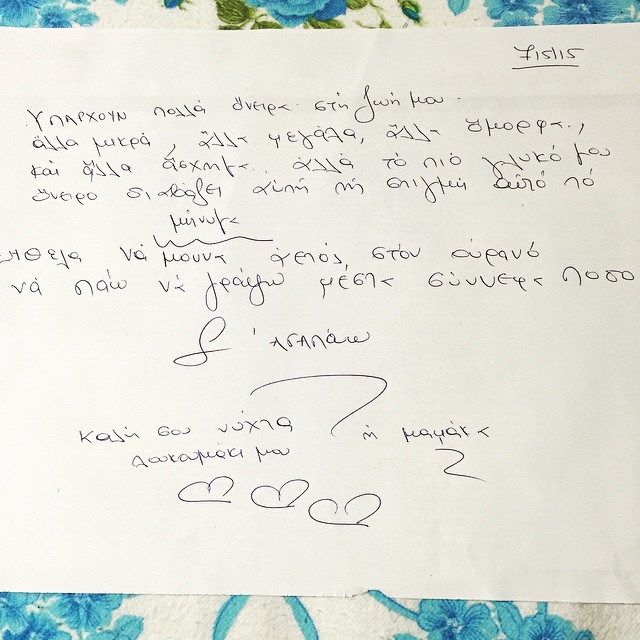 7/5/15
ΥΠΑΡΧΟΥΝ πολλά όνειρα στη ζωή μου.
άλλα μικρά, άλλα μεγάλα, άλλα όμορφα,
και άλλα άσχημα. αλλά το πιο γλυκό μου
όνειρο διαβάζει αυτή τη στιγμή αυτό το
μήνυμα
ήθελα νά μουνα αετός, στον ουρανό
νά πάω νά γράψω μέσα σύννεφα πόσο
Σ' αγαπάω
Καλή σου νύχτα
Λουκουμάκι μου
η μαμάκα